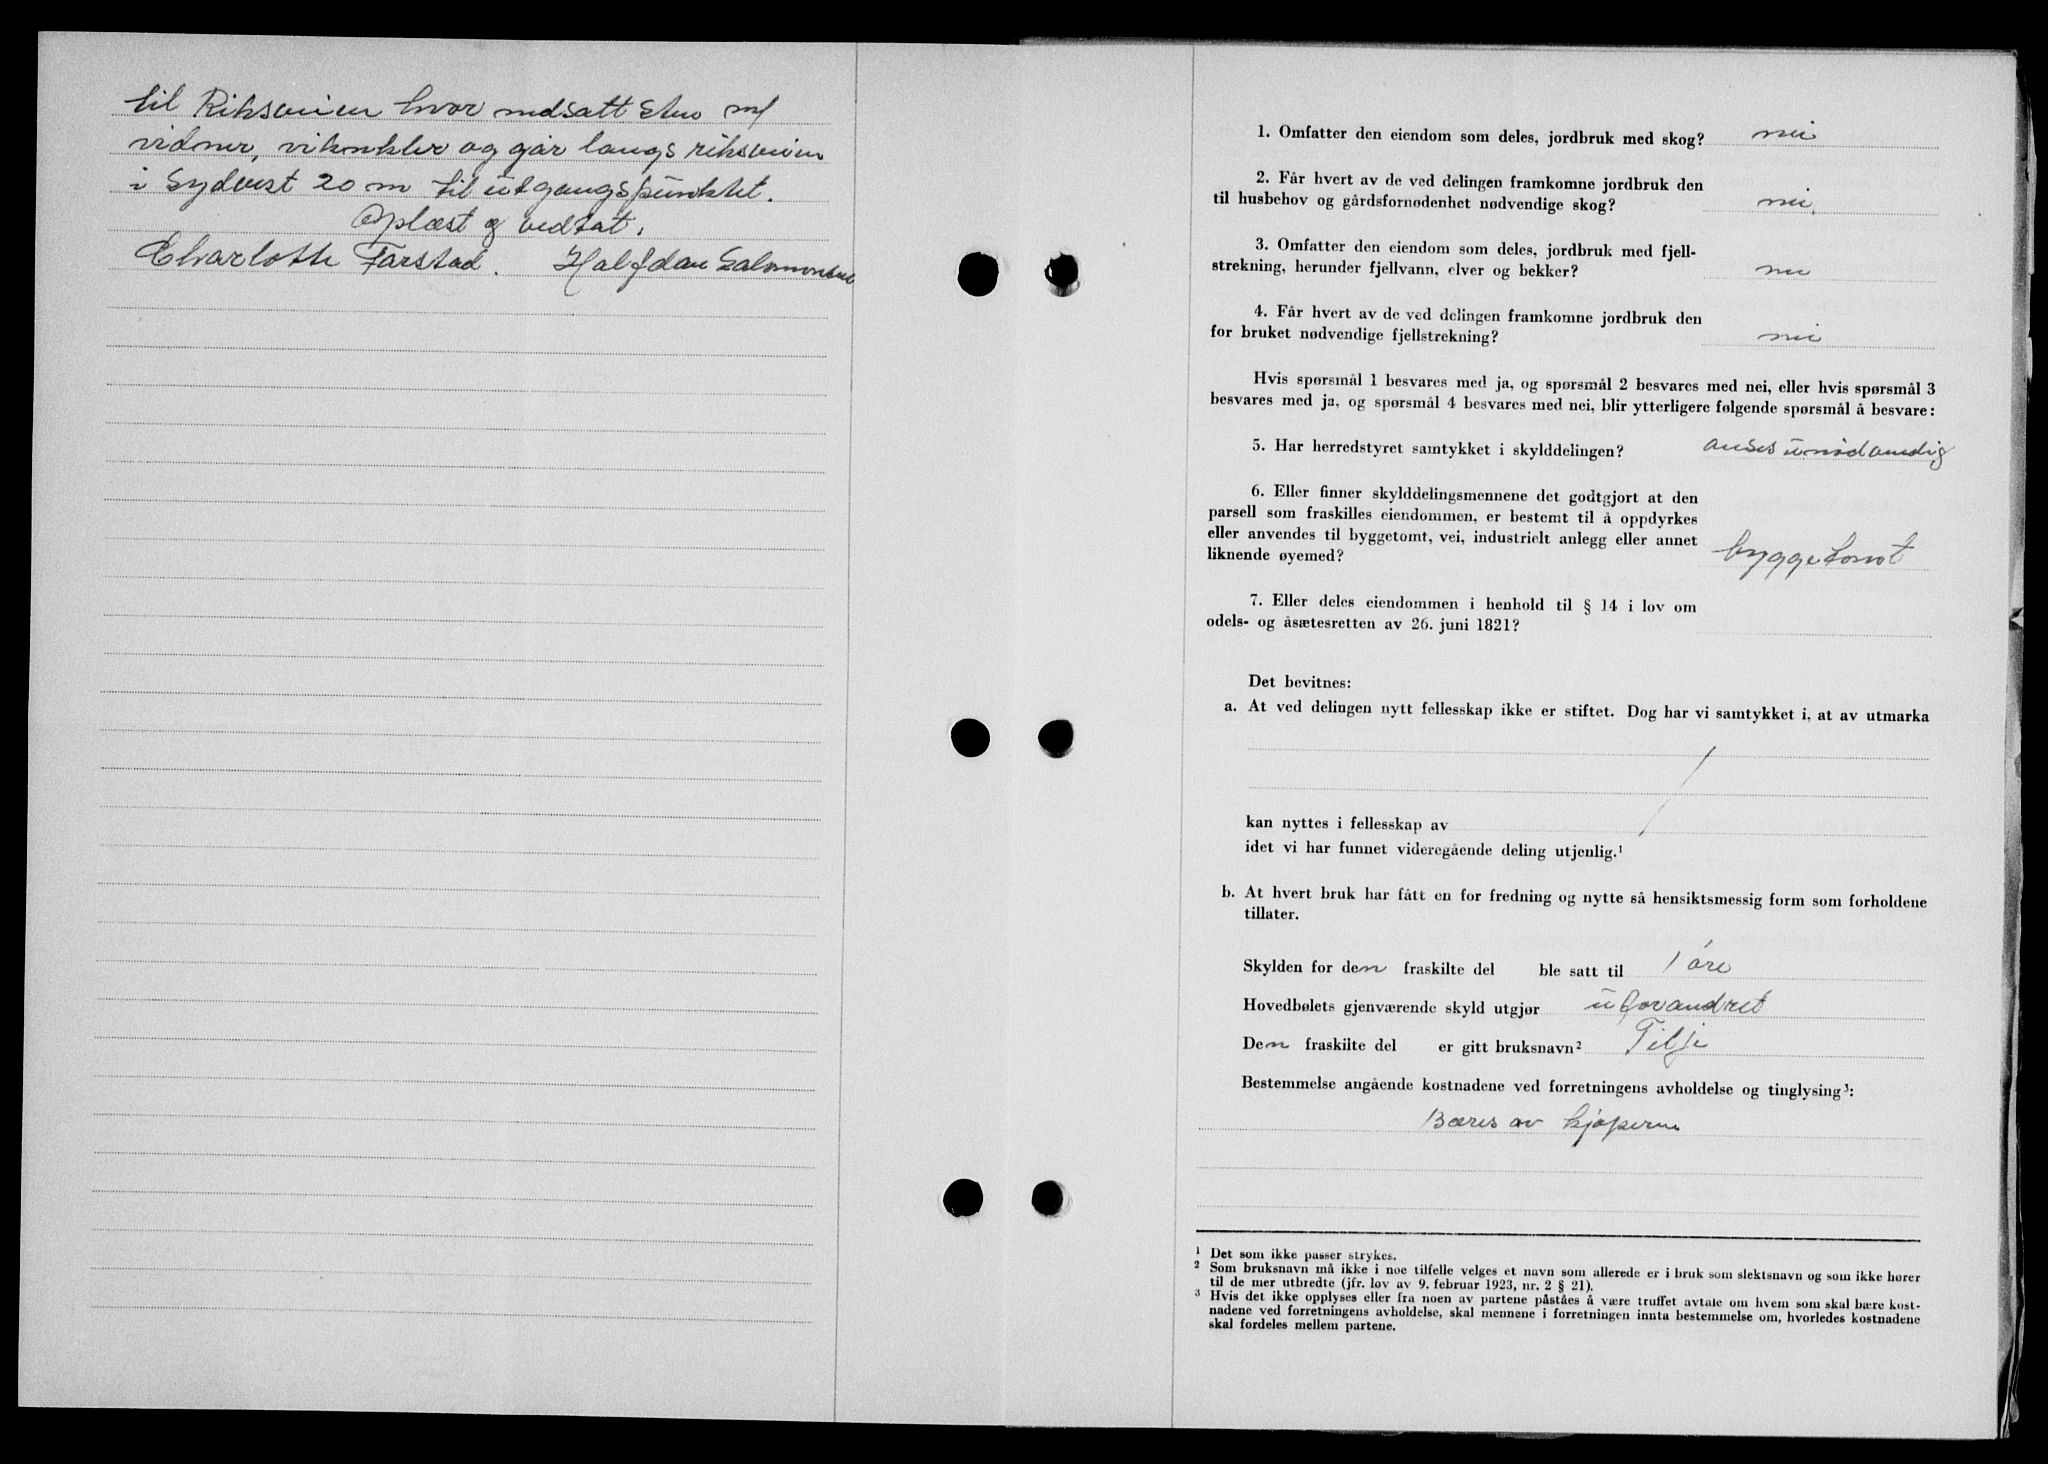 til Riksveien hvor nedsatt sten m/
vidner, viknkler og går langs riksveien
i Sydvest 20 m til utgangspunktet.
Oplæst og vedtat.
Charlotte Farstad. Halfdan Salomonsen
1. Omfatter den eiendom som deles, jordbruk med skog? nei
2. Får hvert av de ved delingen framkomne jordbruk den
til husbehov og gårdsfornødenhet nødvendige skog? nei.
3. Omfatter den eiendom som deles, jordbruk med fjell-
strekning, herunder fjellvann, elver og bekker? nei
4. Får hvert av de ved delingen framkomne jordbruk den
for bruket nødvendige fjellstrekning? nei
Hvis spørsmål 1 besvares med ja, og spørsmål 2 besvares med nei, eller hvis spørsmål 3
besvares med ja, og spørsmål 4 besvares med nei, blir ytterligere følgende spørsmål å besvare:
5. Har herredstyret samtykket i skylddelingen? anses unødvendig
6. Eller finner skylddelingsmennene det godtgjort at den
parsell som fraskilles eiendommen, er bestemt til å oppdyrkes
eller anvendes til byggetomt, vei, industrielt anlegg eller annet
liknende øyemed? byggetomt
7. Eller deles eiendommen i henhold til § 14 i lov om
odels- og åsætesretten av 26. juni 1821?
Det bevitnes:
a. At ved delingen nytt fellesskap ikke er stiftet. Dog har vi samtykket i, at av utmarka
kan nyttes i fellesskap av
idet vi har funnet videregående deling utjenlig.¹
b. At hvert bruk har fått en for fredning og nytte så hensiktsmessig form som forholdene
tillater.
Skylden for den fraskilte del ble satt til 1 øre
Hovedbølets gjenværende skyld utgjør uforandret
Den fraskilte del er gitt bruksnavn² Tilje
Bestemmelse angående kostnadene ved forretningens avholdelse og tinglysing³:
Bæres av kjøperne
¹ Det som ikke passer strykes.
² Som bruksnavn må ikke i noe tilfelle velges et navn som allerede er i bruk som slektsnavn og som ikke hører
til de mer utbredte (jfr. lov av 9. februar 1923, nr. 2 § 21).
³ Hvis det ikke opplyses eller fra noen av partene påståes å være truffet avtale om hvem som skal bære kost-
nadene ved forretningens avholdelse, skal mennene i forretningen innta bestemmelse om, hvorledes kostnadene
skal fordeles mellem partene.